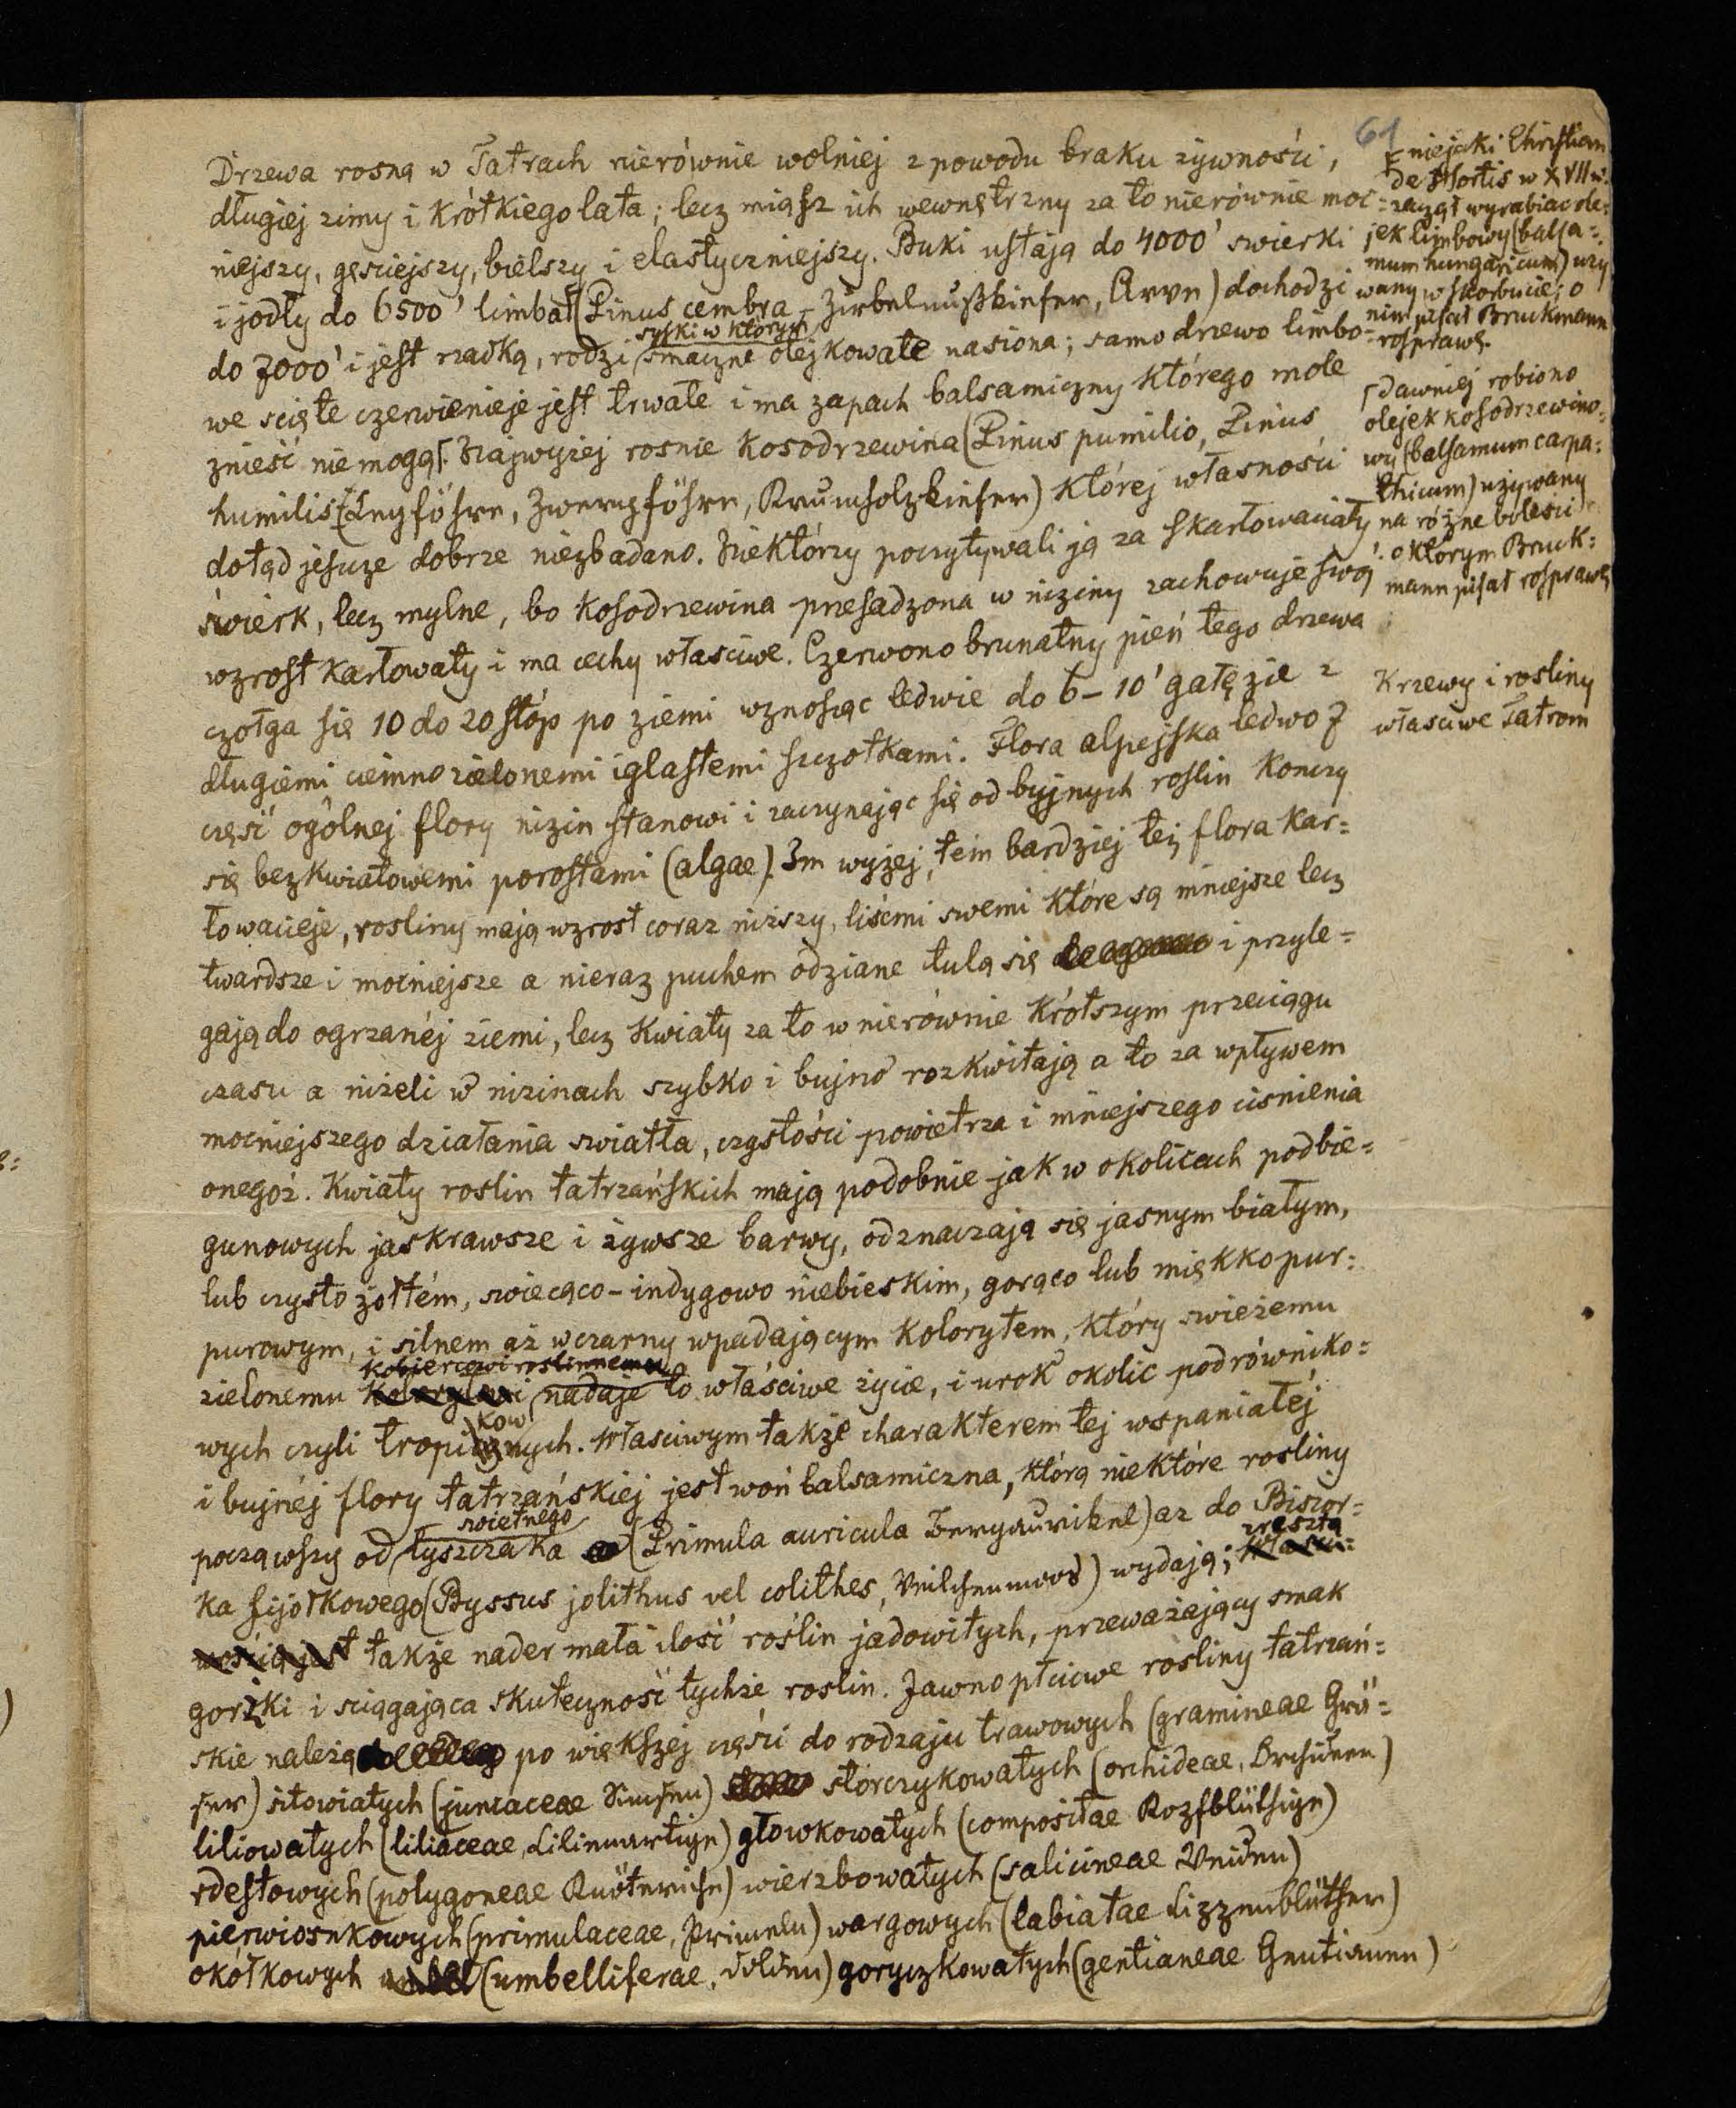 61
Drzewa rosną w Tatrach nierównie wolniej z powodu braku zywności,
długiej zimy i krótkiego lata; lecz miąsz ich wewnętrzny za to nierównie moc=
niejszy, gęsciejszy, bielszy i elastyczniejszy. Buki ustają do 4000' swierki
i jodły do 6500' limba (Pinus cembra – Zirbelnußkiefer, Arve) dochodzi
syski w których
do 7000' i jest rzadką, rodzi smaczne olejkowate nasiona; samo drzewo limbo=
we scięte czerwienieje jest trwałe i ma zapach balsamiczny którego mole
znieść nie mogą. Najwyżej rosnie Kosodrzewina (Pinus pumilio, Pinus
humilis (Legföhre, Zwergföhre, Krumholzkiefer) której własności
dotąd jescze dobrze niezbadano. Niektórzy poczytywali ją za skarłowaciały
świerk, lecz mylne, bo kosodrzewina presadzona w niziny zachowuje swój
wzrost karłowaty i ma cechy własciwe. Czerwono brunatny pień tego drzewa
czołga się 10 do 20 stóp po ziemi wznosząc ledwie do 6–10' gałęzie z
długiemi ciemno zielonemi iglastemi szczotkami. Flora alpejska ledwo 7
część ogólnej flory nizin stanowi i zaczynając się od bujnych roslin konczy
się bezkwiatowemi porostami (algae). Im wyżej, tem bardziej tej flora kar=
łowacieje, rosliny mają wzrost coraz niższy, liśćmi swemi które są mniejsze lecz
twardsze i mocniejsze a nieraz puchem odziane tulą się i przyle=
gają do ogrzanéj ziemi, lecz kwiaty za to w nierównie krótszym przeciągu
czasu a niżeli w nizinach szybko i bujno rozkwitają a to za wpływem
mocniejszego działania swiatła, czystości powietrza i mniejszego cisnienia
onegoż. Kwiaty roslin tatrzańskich mają podobnie jak w okolicach podbie=
gunowych jaskrawsze i żywsze barwy, odznaczają się jasnym białym,
lub czysto żołtém, swiecąco–indygowo niebieskim, gorąco lub miękko pur=
purowym, i silnem aż w czarny wpadającym kolorytem, który swieżemu
kobiercowi roslinnemu
zielonemu nadaje to właściwe życie, i urok okolic podrówniko=
kow
wych czyli tropicznych. Własciwym także charakterem tej wspaniałéj
i bujnéj flory tatrzańskiéj jest woń balsamiczna, którą niektóre rosliny
swietnego
począwszy od łyszczaka (Primula auricula Bergaurikel) az do Biszor=
zresztą
ka fijołkowego (Byssus jolithus vel colithes, Veilchenmoos) wydają; własci=
wością jest także nader mała ilość roślin jadowitych, przeważający smak
gorzki i sciągająca skuteczność tychże roslin. Jawnopłciowe rosliny tatrzań=
skie należą po większej części do rodzaju trawowych (gramineae Grä=
ser) sitowiatych (juncaceae Simsen) storczykowatych (orchideae, Orchideen)
liliowatych (liliaceae, Lilienartige) głowkowatych (compositae Kopfblüthige)
rdestowych (polygoneae Knöteriche) wierzbowatych (salicineae Weiden)
pierwiosnkowych (primulaceae, Primeln) wargowych (labiatae Lippenblüther)
okółkowych (umbelliferae, Dolden) goryczkowatych (gentianeae Gentianen)
niejaki Christian
de Hortis w XVII w.
zaczął wyrabiac ole=
jek limbowy (balsa=
mum hungaricum) uzy
wany w skorbucie; o
nim pisał Bruckmann
rosprawę.
dawniej robiono
olejek kosodrzewino=
wy (balsamum carpa=
thicum) używany
na różne bolesci
o którym Bruk=
mann pisał rosprawę
Krzewy i rosliny
własciwe Tatrom